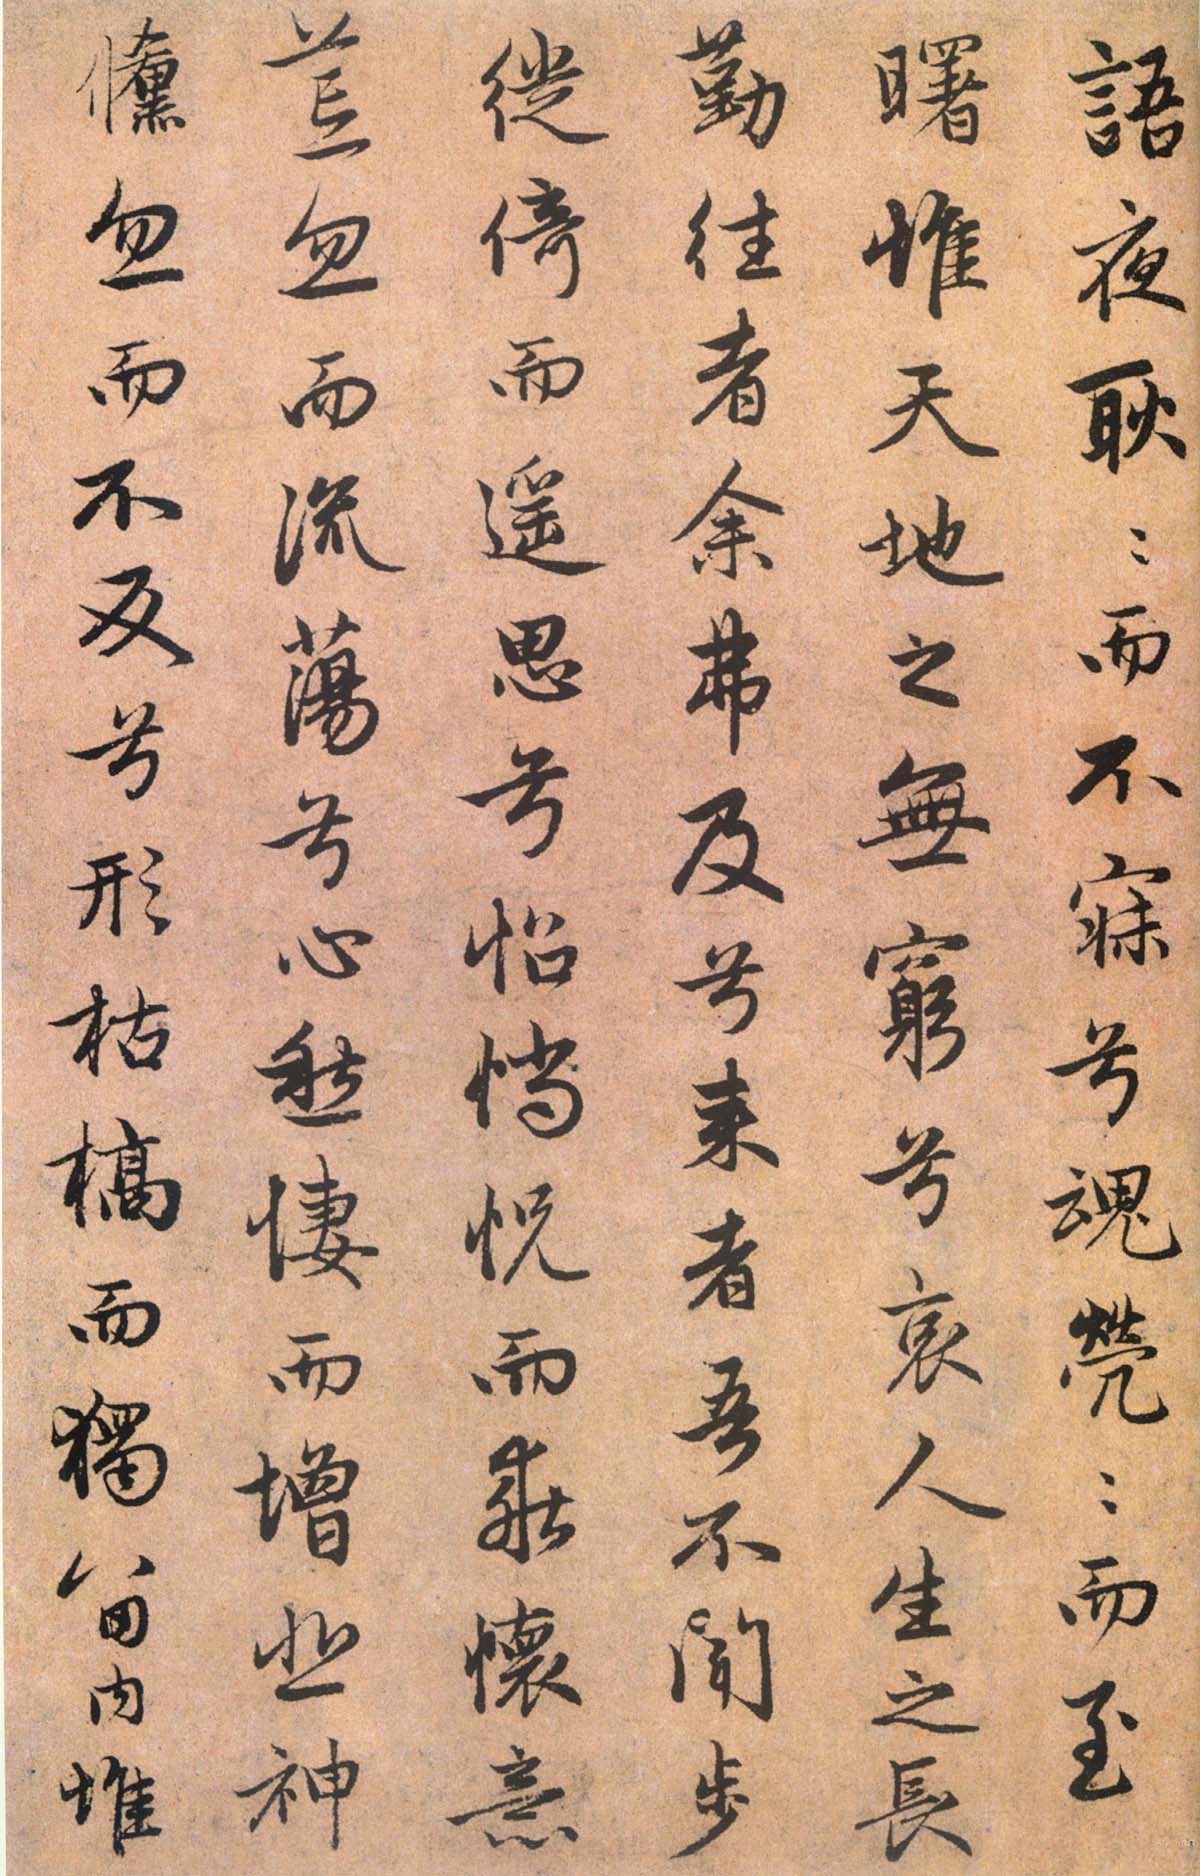 語夜耿〻而不寐兮魂煢〻而至
曙惟天地之無窮兮哀人生之長
勤往者余弗及兮來者吾不聞步
徙倚而遙思兮怊惝怳而乖懷意
荒忽而流蕩兮心愁悽而增悲神
儵忽而不反兮形枯槁而獨留內惟